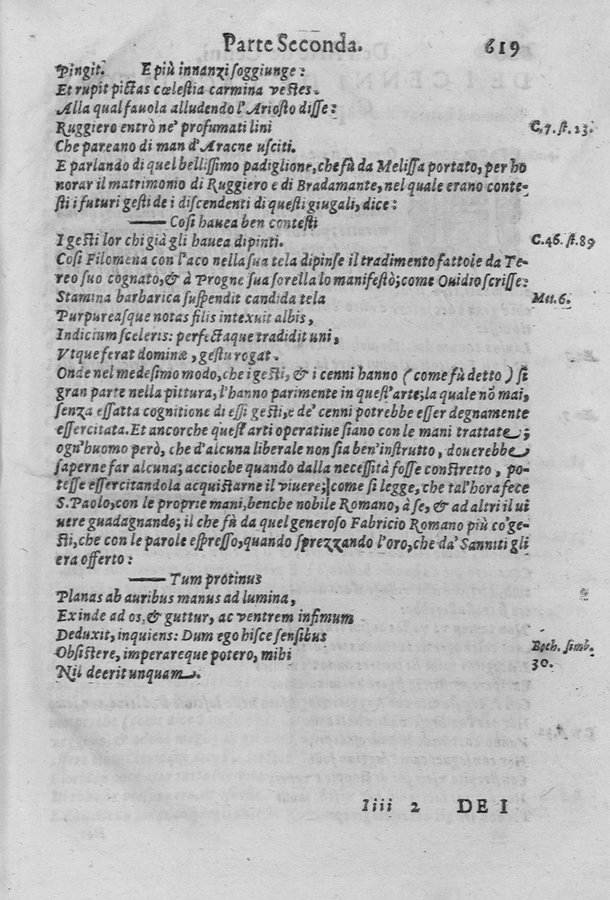 Parte Seconda. 619
Pingit. E più innanzi soggiunge:
Et rupit pictas cœlestia carmina vestes.
Alla qual fauola alludendo l'Ariosto disse:
Ruggiero entrò ne' profumati lini C.7.st.23.
Che pareano di man d'Aracne usciti.
E parlando di quel bellissimo padiglione, che fù da Melissa portato, per ho
norar il matrimonio di Ruggiero e di Bradamante, nel quale erano conte-
sti i futuri gesti de i discendenti di questi giugali, dice:
Cosi hauea ben contesti
I gesti lor chi già gli hauea dipinti. C.46. st.89
Cosi Filomena con l'aco nella sua tela dipinse il tradimento fattole da Te-
reo suo cognato, & à Progne sua sorella lo manifestò; come Ouidio scrisse:
Stamina barbarica suspendit candida tela Met.6.
Purpureasque notas filis intexuit albis,
Indicium sceleris: perfectaque tradidit uni,
Vtque ferat dominæ, gestu rogat.
Onde nel medesimo modo, che i gesti, & i cenni hanno (come fù detto) sì
gran parte nella pittura, l'hanno parimente in quest'arte; la quale nō mai,
senza essatta cognitione di essi gesti, e de' cenni potrebbe esser degnamente
essercitata. Et ancorche quest'arti operatiue siano con le mani trattate;
ogn'huomo però, che d'alcuna liberale non sia ben'instrutto, douerebbe
saperne far alcuna; accioche quando dalla necessità fosse constretto, po-
tesse essercitandola acquistarne il viuere; come si legge, che tal'hora fece
S. Paolo, con le proprie mani, benche nobile Romano, à se, & ad altri il ui
uere guadagnando; il che fù da quel generoso Fabricio Romano più co'ge-
sti, che con le parole espresso, quando sprezzando l'oro, che da' Sanniti gli
era offerto:
Tum protinus
Planas ab auribus manus ad lumina,
Exinde ad os, & guttur, ac ventrem infimum
Deduxit, inquiens: Dum ego hisce sensibus
Obsistere, imperareque potero, mihi Boch. simb.
Nil deerit unquam. 30.
Iiii 2 DE I